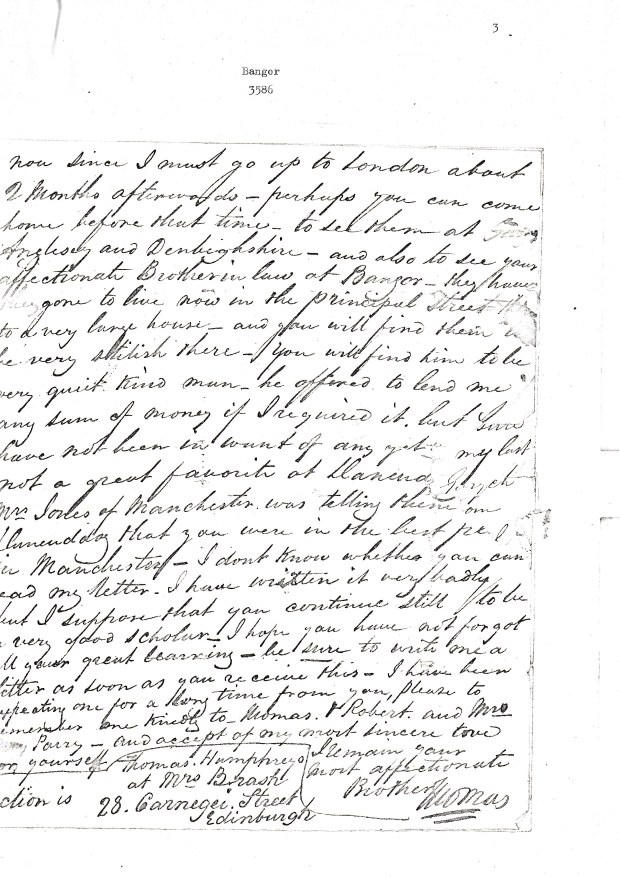 3
Bangor
3586
now since I must go up to London about
2 Months afterwards – perhaps you can come
home before that time – to see them at
Anglesey and Denbighshire – and also to see your
affectionate Brother in law at Bangor – they have
gone to live now in the principal Street
to a very large house – and you will find them
be very stilish there – you will find him to be
very quiet kind man – he offered to lend me
any sum of money if I required it. but
have not been in want of any yet – my last
not a great favorite at
Mrs Jones of Manchester was telling them on
that you were in the best
in Manchester – I dont know whether you can
read my letter. I have written it very badly
but I suppose that you continue still to be
a very good scholar – I hope you have not forgot
all your great learning – be sure to write me a
letter as soon as you receive this – I have been
expecting one for a long time from you, please to
remember me kindly to Thomas. & Robert. and Mrs
Parry – and accept of my most sincere love
for yourself
I Remain your
most affectionate
Brother
Thomas
ction is
Thomas. Humphreys
at Mrs Brash
28. Carnegei. Street
Edinburgh